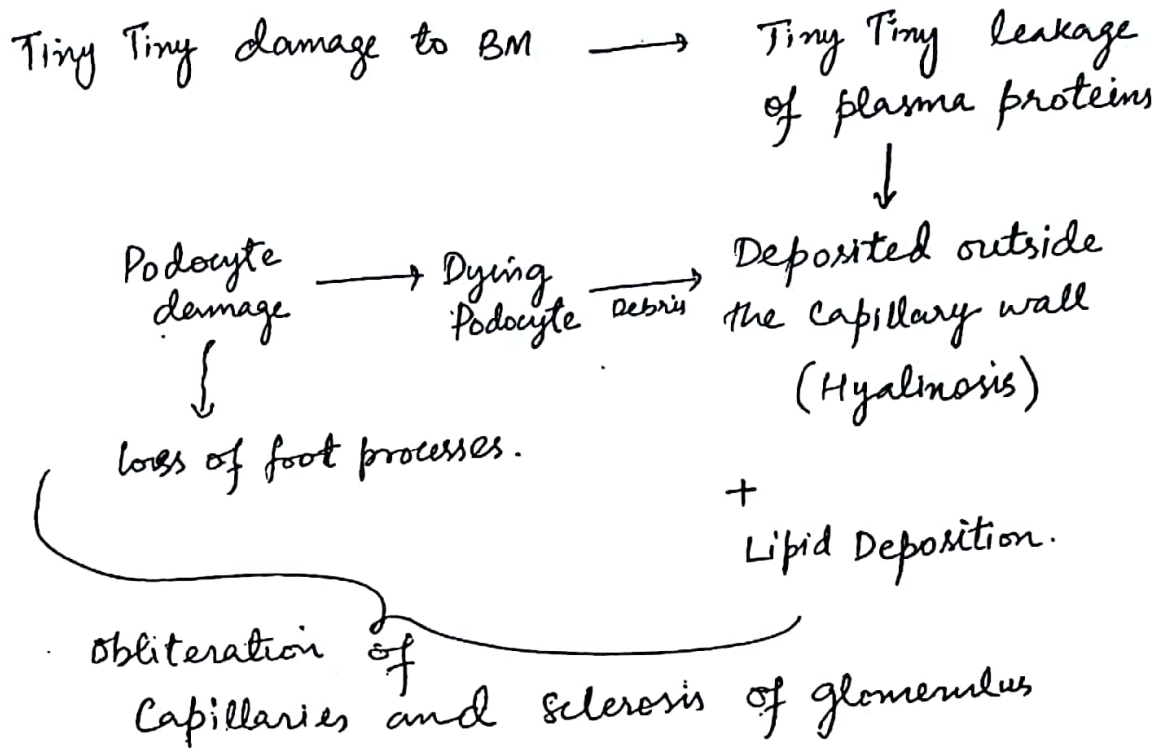 Tiny Tiny damage to BM
Tiny Tiny leakage
of plasma proteins
Podocyte
damage
Dying
Podocyte
Debris
Deposited outside
the capillary wall
(Hyalinosis)
loss of foot processes.
+
Lipid Deposition.
Obliteration of
Capillaries and sclerosis of glomerulus